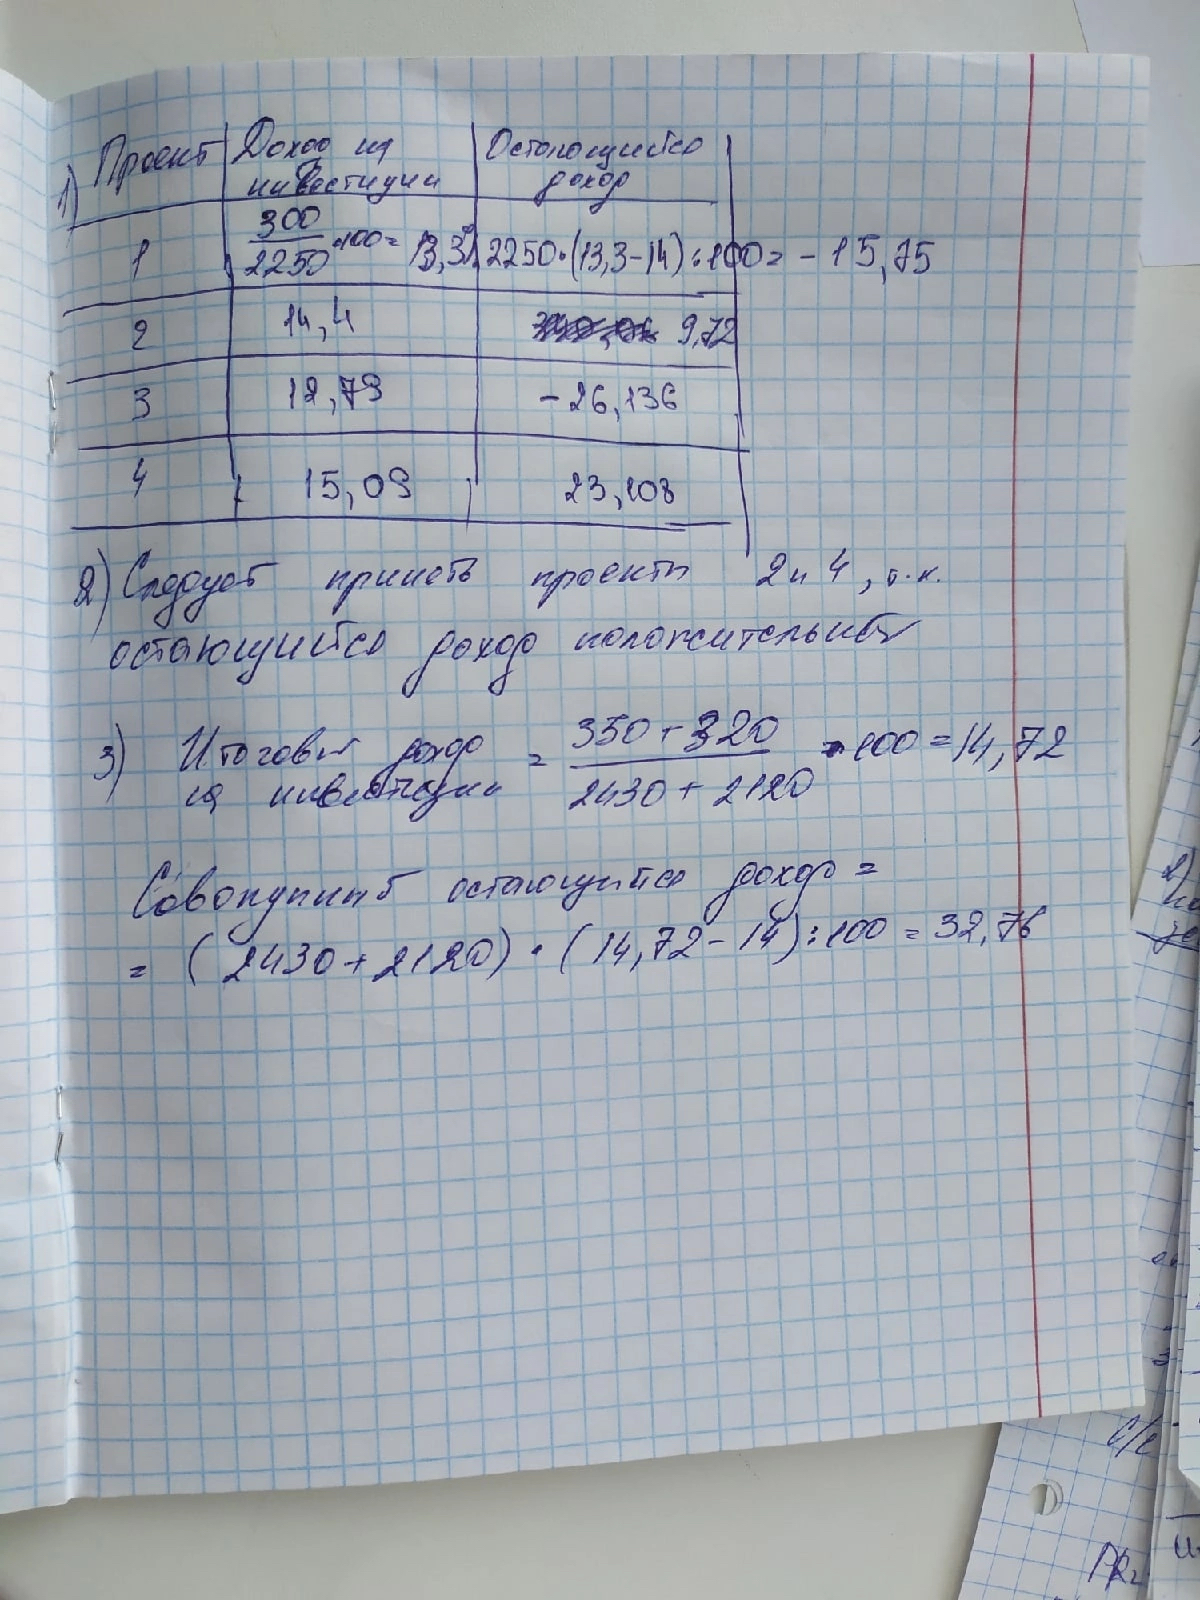 1) Проект Доход на инвестиции Остающийся доход
1 300/2250 ·100= 13,3% 2250·(13,3-14):100= -15,75
2 14,4 9,72
3 12,79 -26,136
4 15,09 23,108
2) Следует принять проекты 2 и 4, т.к.
остающийся доход положительный
3) Итоговый доход на инвестиции = 350+320/2430+2120 ·100=14,72
Совокупный остающийся доход =
= (2430+2120)·(14,72-14):100=32,76
2)
С/с
PR₂